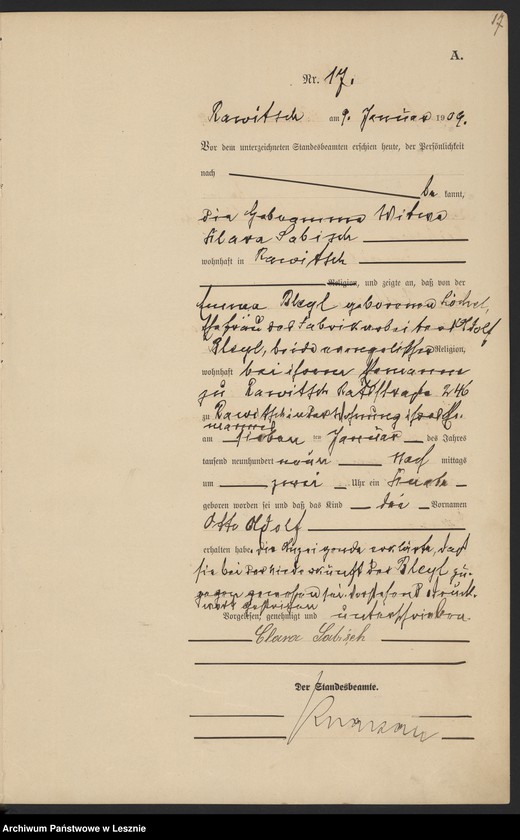 17
A.
Nr. 17.
Rawitsch am 9. Januar 1909.
Vor dem unterzeichneten Standesbeamten erschien heute, der Persönlichkeit
nach
be kannt,
die Hebamme Witwe
Klara Sabisch
wohnhaft in Rawitsch
Religion, und zeigte an, daß von der
Emma Bleyl geborenen
Ehefrau des Fabrikarbeiters Adolf
Bleyl, beide evangelischer Religion,
wohnhaft bei ihrem Ehemanne
zu Rawitsch 246
zu Rawitsch in der Wohnung ihres Ehe-
mannes
am sieben ten Januar des Jahres
tausend neunhundert neun Nach mittags
um zwei Uhr ein Knabe
geboren worden sei und daß das Kind die Vornamen
Otto Adolf
erhalten habe. die Anzeigende erklärte, daß
sie bei der Niederkunft der Bleyl zu-
gegen gewesen sei. Vorstehend Druck-
wort gestrichen
Vorgelesen, genehmigt und unterschrieben
Clara Sabisch
Der Standesbeamte.
Archiwum Państwowe w Lesznie